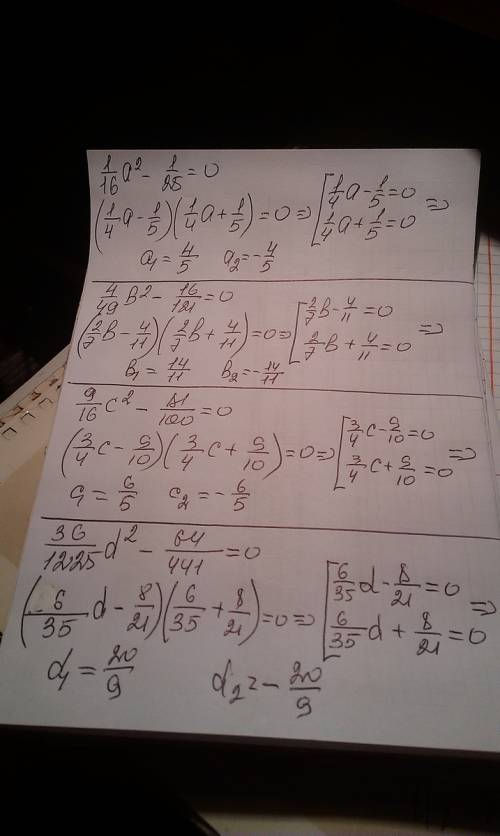 1/16 a² - 1/25 = 0
(1/4 a - 1/5)(1/4 a + 1/5) = 0 => [1/4 a - 1/5 = 0 1/4 a + 1/5 = 0 =>
a₁ = 4/5 a₂ = -4/5
4/49 B² - 16/121 = 0
(2/7 B - 4/11)(2/7 B + 4/11) = 0 => [2/7 B - 4/11 = 0 2/7 B + 4/11 = 0 =>
B₁ = 14/11 B₂ = -14/11
9/16 c² - 81/100 = 0
(3/4 c - 9/10)(3/4 c + 9/10) = 0 => [3/4 c - 9/10 = 0 3/4 c + 9/10 = 0 =>
c₁ = 6/5 c₂ = -6/5
36/1225 d² - 64/441 = 0
(6/35 d - 8/21)(6/35 + 8/21) = 0 => [6/35 d - 8/21 = 0 6/35 d + 8/21 = 0 =>
d₁ = 20/9 d₂ = -20/9